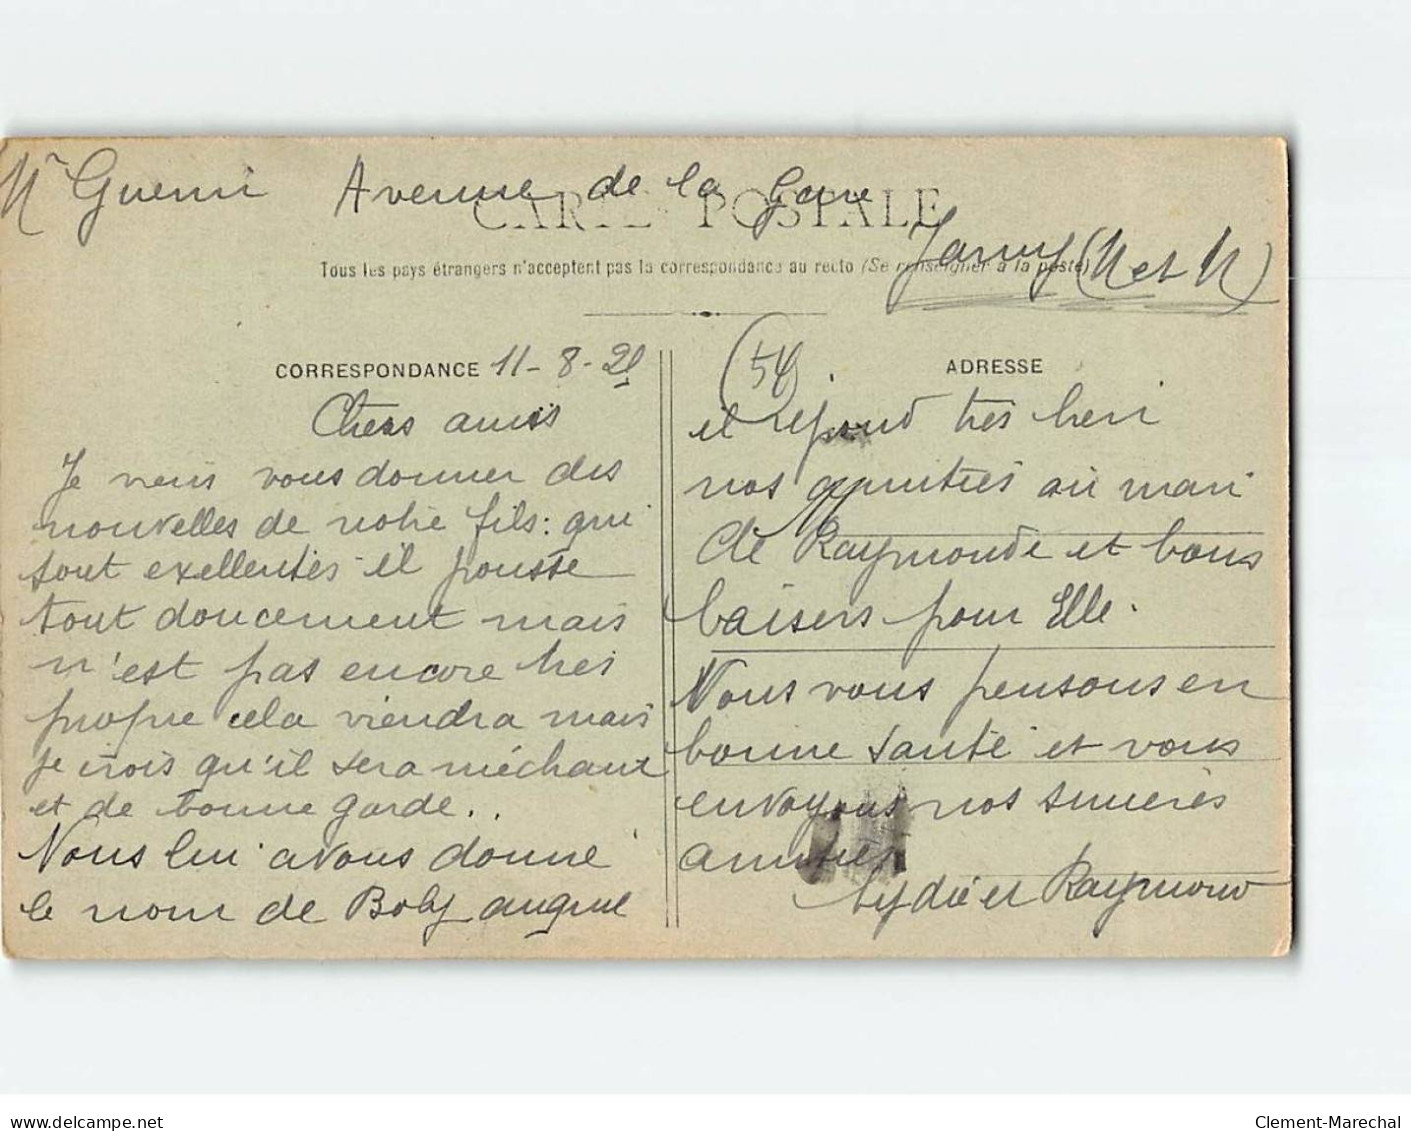 Mr Guerin Avenue de la Gare
CARTE POSTALE
Jarny (M et M)
Tous les pays étrangers n'acceptent pas la correspondance au recto (Se renseigner à la poste)
CORRESPONDANCE 11-8-21
Chers amis
Je viens vous donner des
nouvelles de notre fils: qui
sont exellentes il pousse
tout doucement mais
n'est pas encore très
propre cela viendra mais
je crois qu'il sera méchant
et de bonne garde..
Nous lui avons donné
le nom de Boby auquel
(54)
ADRESSE
il répond très bien
nos amitiés au mari
de Raymonde et bons
baisers pour Elle.
Nous vous pensons en
bonne santé et vous
envoyons nos sincères
amitiés
Lydie et Raymond
delcampe.net
Clement-Marechal